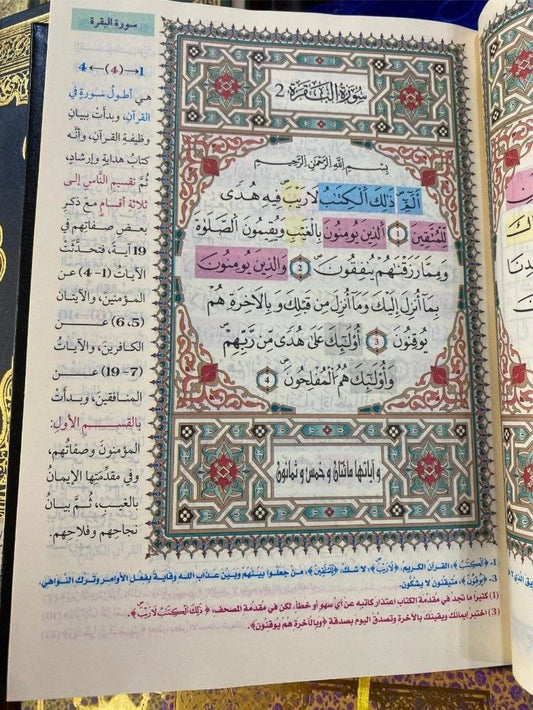 سورة البقرة
1→(4)←4
هي أطول سورة في
القرآن، وبدأت ببيان
وظيفة القرآن، وأنه
كتاب هداية وإرشاد،
ثم تقسيم الناس إلى
ثلاثة أقسام مع ذكر
بعض صفاتهم في
19 آية، فتحدثت
الآيات (1-4) عن
المؤمنين، والآيتان
(6،5) عن
الكافرين، والآيات
(7-19) عن
المنافقين، وبدأت
بالقسم الأول:
المؤمنون وصفاتهم،
وفي مقدمتها الإيمان
بالغيب، ثم بيان
نجاحهم وفلاحهم.
سُورَةُ البَقَرَةِ 2
بِسْمِ اللَّهِ الرَّحْمَٰنِ الرَّحِيمِ
الٓمٓ ذَٰلِكَ الْكِتَٰبُ لَا رَيْبَ فِيهِ هُدًى
لِّلْمُتَّقِينَ 1 الَّذِينَ يُومِنُونَ بِالْغَيْبِ وَيُقِيمُونَ الصَّلَوٰةَ
وَمِمَّا رَزَقْنَٰهُمْ يُنفِقُونَ 2 وَالذِينَ يُومِنُونَ
بِمَا أُنزِلَ إِلَيْكَ وَمَا أُنزِلَ مِن قَبْلِكَ وَبِالَاخِرَةِ هُمْ
يُوقِنُونَ 3 أُوْلَٰئِكَ عَلَىٰ هُدًى مِّن رَّبِّهِمْ
وَأُوْلَٰئِكَ هُمُ الْمُفْلِحُونَ 4
و آياتها مائتان و خمس و ثمانون
1- ﴿الْكِتَٰبُ﴾: القرآن الكريم، ﴿لَا رَيْبَ﴾: لا شك، ﴿لِّلْمُتَّقِينَ﴾: من جعلوا بينهم وبين عذاب الله وقاية بفعل الأوامر وترك النواهي.
3- ﴿يُوقِنُونَ﴾: متيقنون لا يشكون.
(1) كثيرا ما تجد في مقدمة الكتاب اعتذار كاتبه عن أي سهو أو خطأ، لكن في مقدمة المصحف: ﴿ذَٰلِكَ الْكِتَٰبُ لَا رَيْبَ﴾.
(3) اختبر إيمانك ويقينك بالآخرة وتصدق اليوم بصدقة ﴿وَبِالَاخِرَةِ هُمْ يُوقِنُونَ﴾.